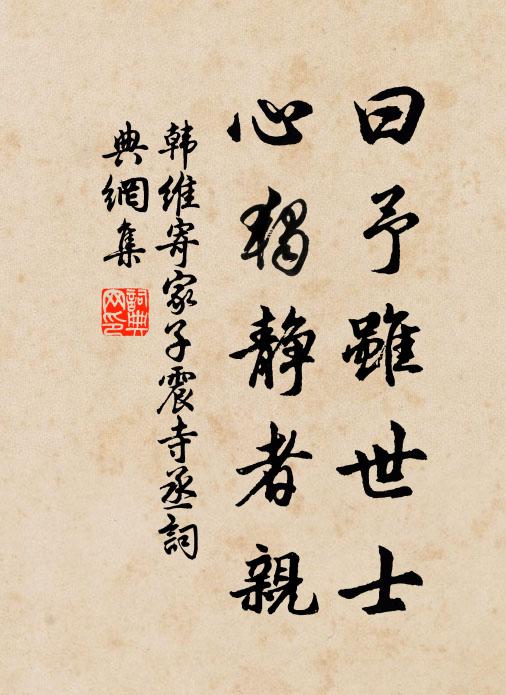 曰予雖世士
心獨静者親
韩維寄家子震寺丞詞
典網集
詞典
网印